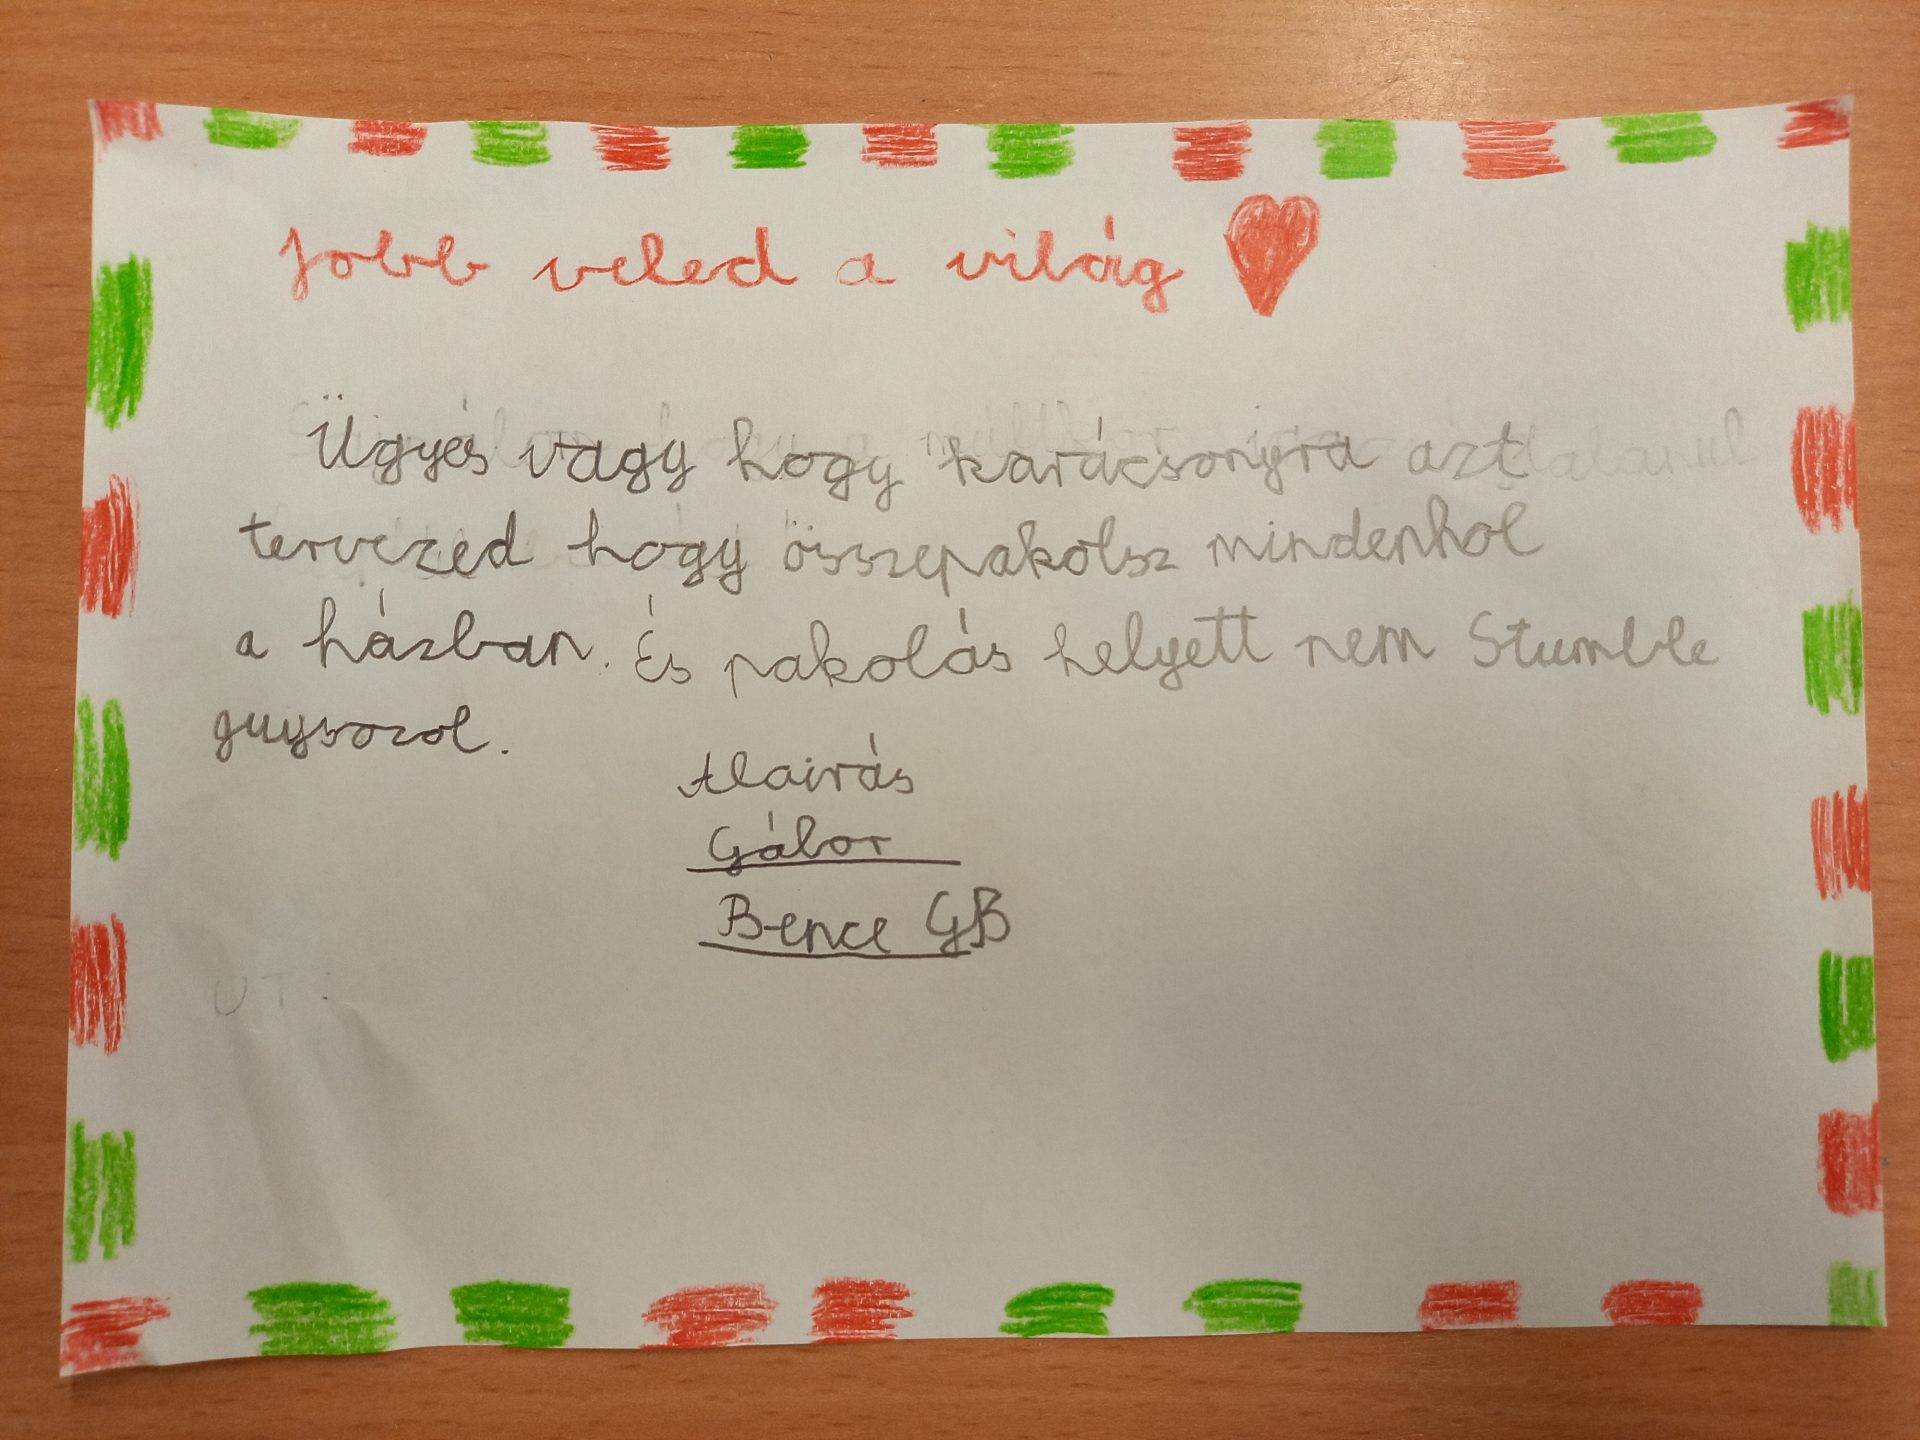 Jobb veled a világ
Ügyes vagy hogy karácsonyra azt
tervezed hogy összepakolsz mindenhol
a házban. És pakolás helyett nem Stumble
guysozol.
Alairás
Gábor
Bence GB
UT.